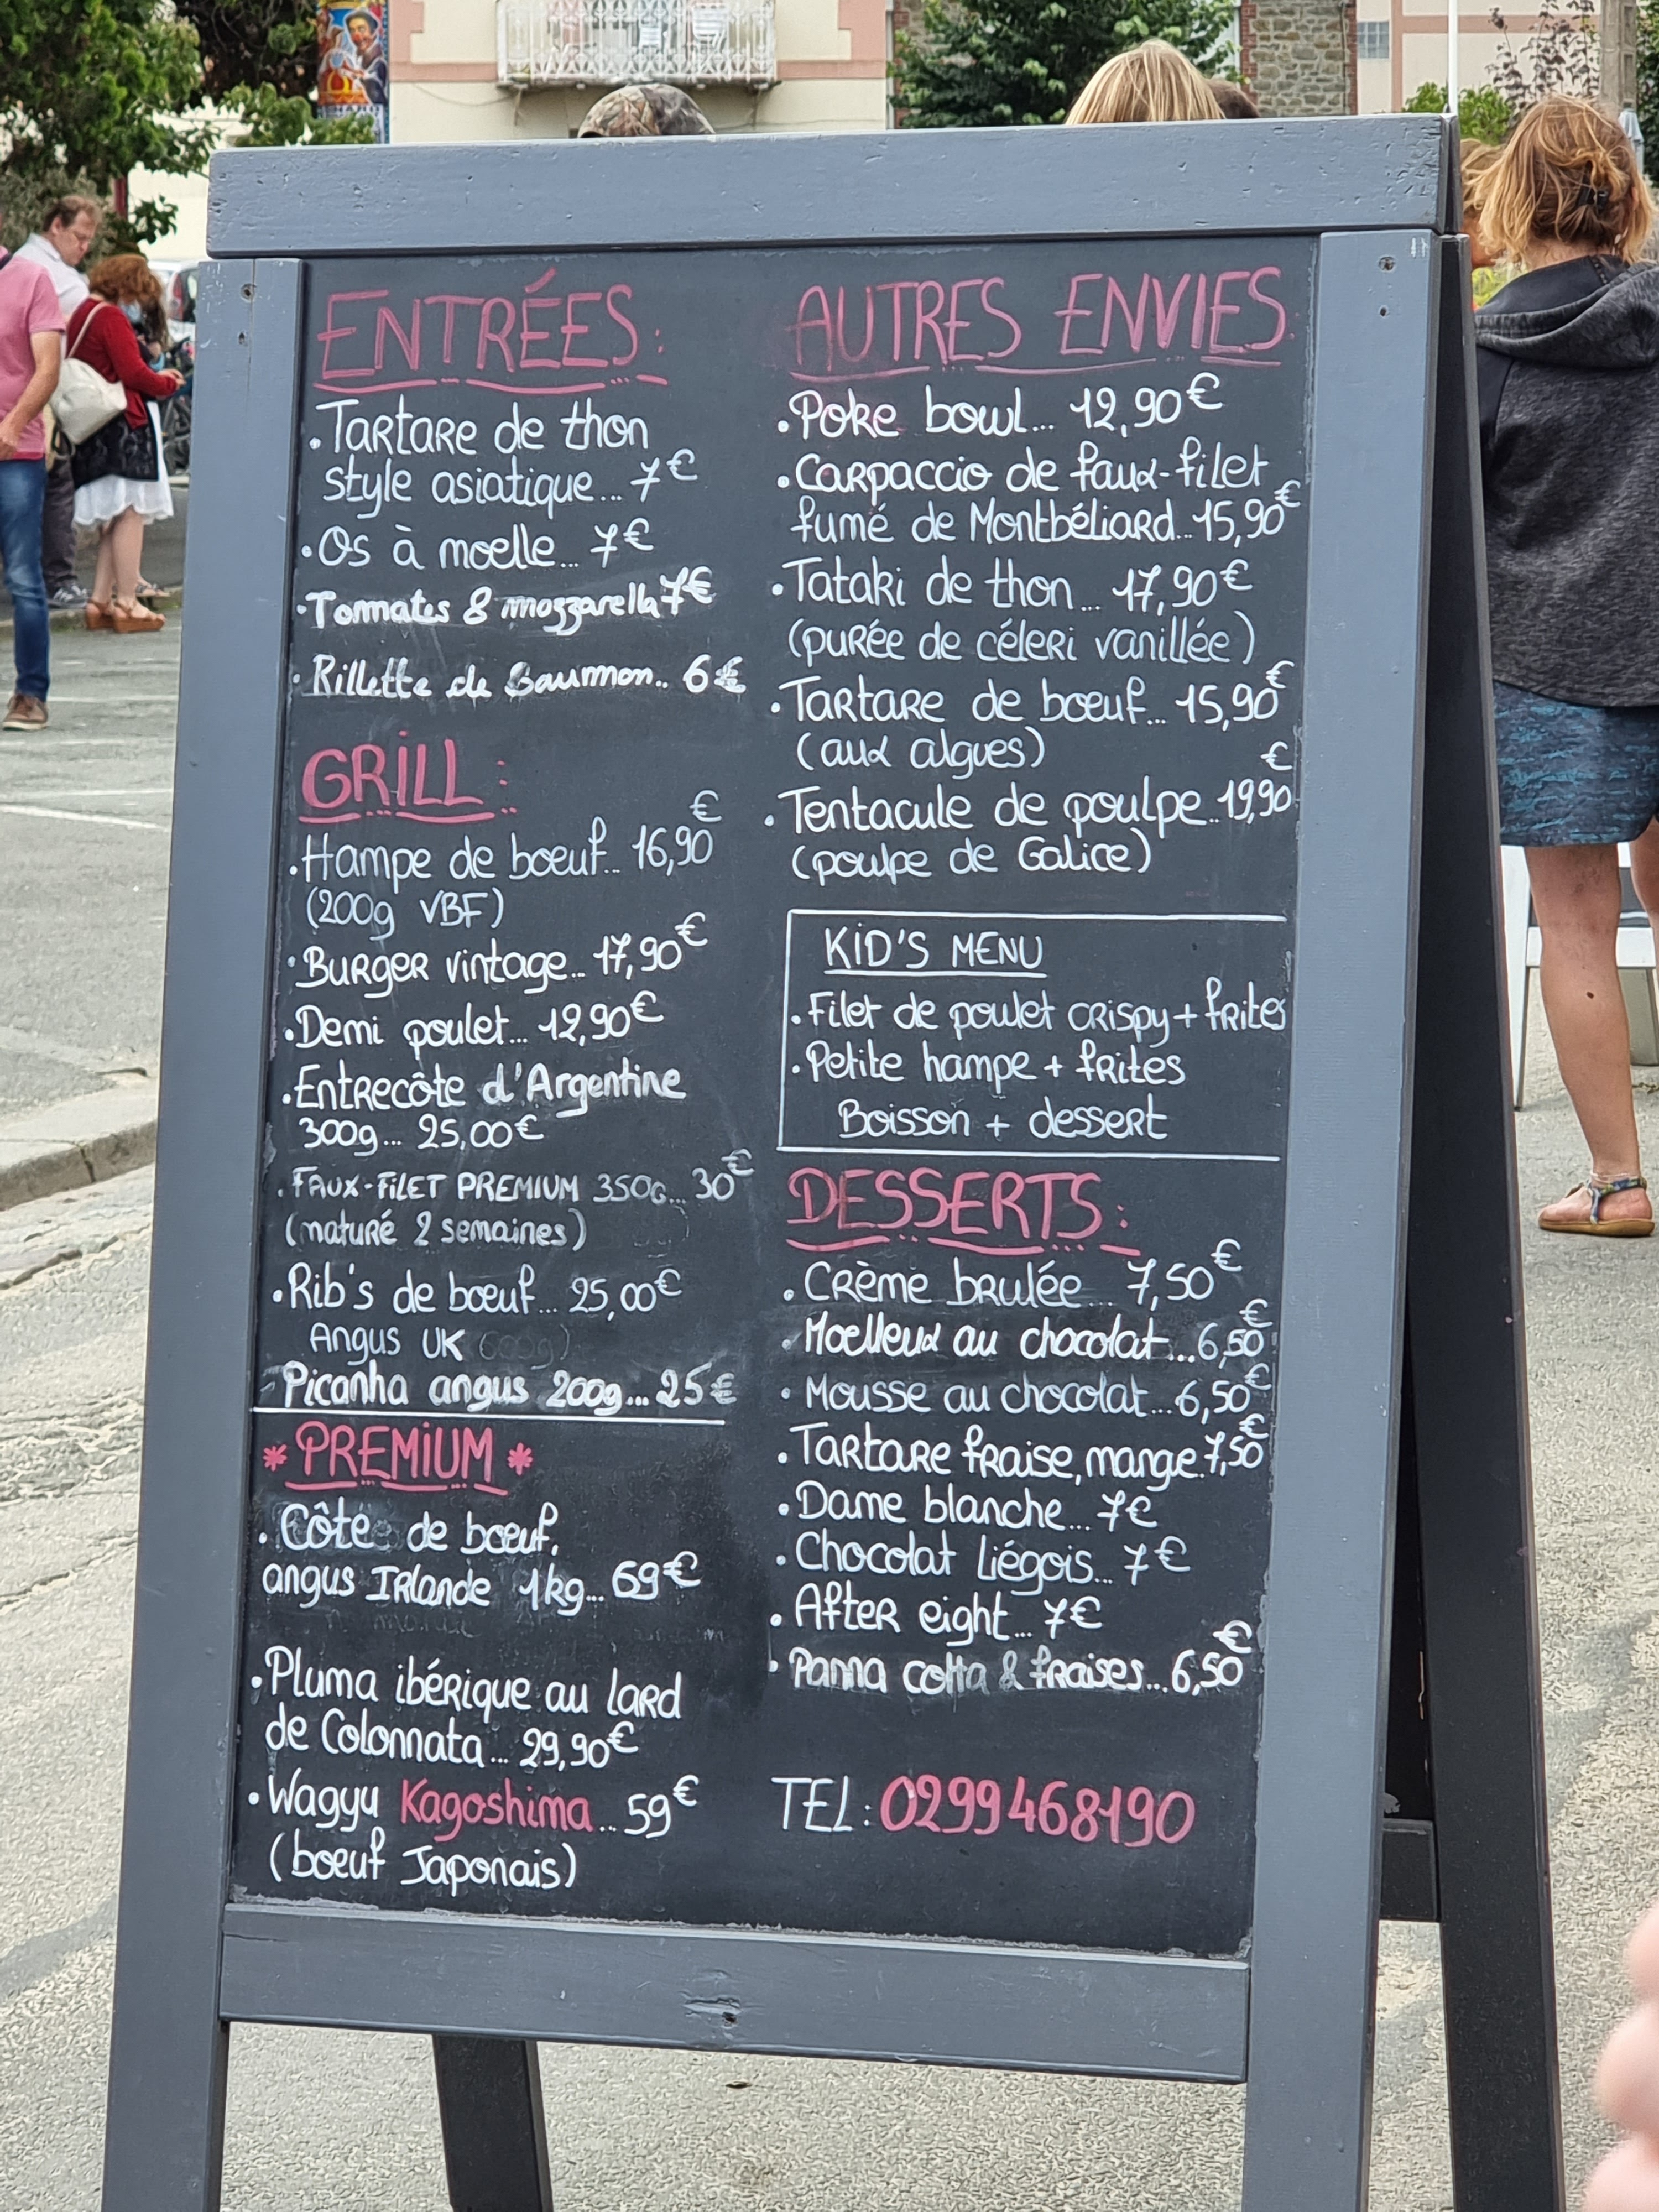 ENTRÉES:
.Tartare de thon
style asiatique... 7€
.Os à moelle... 7€
.Tommates & mozzarella 7€
.Rillette de Saumon.. 6€
GRILL:
.Hampe de boeuf... 16,90€
(200g VBF)
.Burger vintage... 17,90€
.Demi poulet... 12,90€
.Entrecôte d'Argentine
300g... 25,00€
.FAUX-FILET PREMIUM 350G... 30€
(maturé 2 semaines)
.Rib's de boeuf... 25,00€
Angus UK
-Picanha angus 200g... 25€
* PREMIUM *
.Côte de boeuf.
angus Irlande 1kg... 69€
.Pluma ibérique au lard
de Colonnata... 29,90€
.Wagyu Kagoshima... 59€
(boeuf Japonais)
AUTRES ENVIES:
.Poke bowl... 12,90€
.Carpaccio de faux-filet
fumé de Montbéliard.. 15,90€
.Tataki de thon... 17,90€
(purée de céleri vanillée)
.Tartare de boeuf... 15,90€
(aux algues)
.Tentacule de poulpe.. 19,90€
(poulpe de Galice)
KID'S MENU
.Filet de poulet crispy + frites
.Petite hampe + frites
Boisson + dessert
DESSERTS:
.Crème brulée... 7,50€
.Moelleux au chocolat... 6,50€
.Mousse au chocolat... 6,50€
.Tartare fraise, mangue. 7,50€
.Dame blanche... 7€
.Chocolat Liégois... 7€
.After eight... 7€
.Panna cotta & fraises... 6,50€
TEL: 0299468190